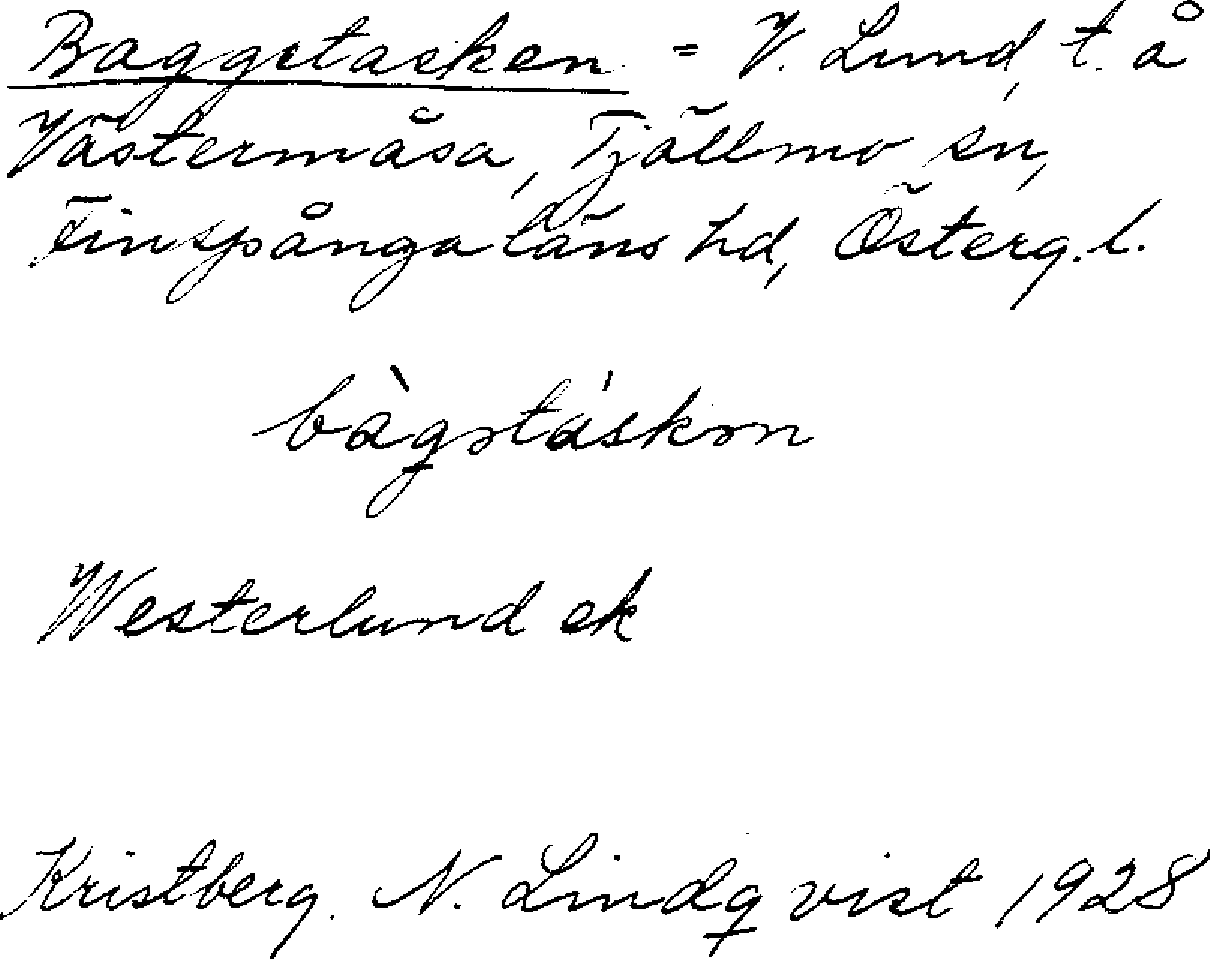 Baggetasken = V. Lund, t. å
Västermåsa, Tjällmo sn,
Finspånga läns hd, Österg. l.
bàgstáskən
Westerlund ek
Kristberg. N. Lindqvist 1928